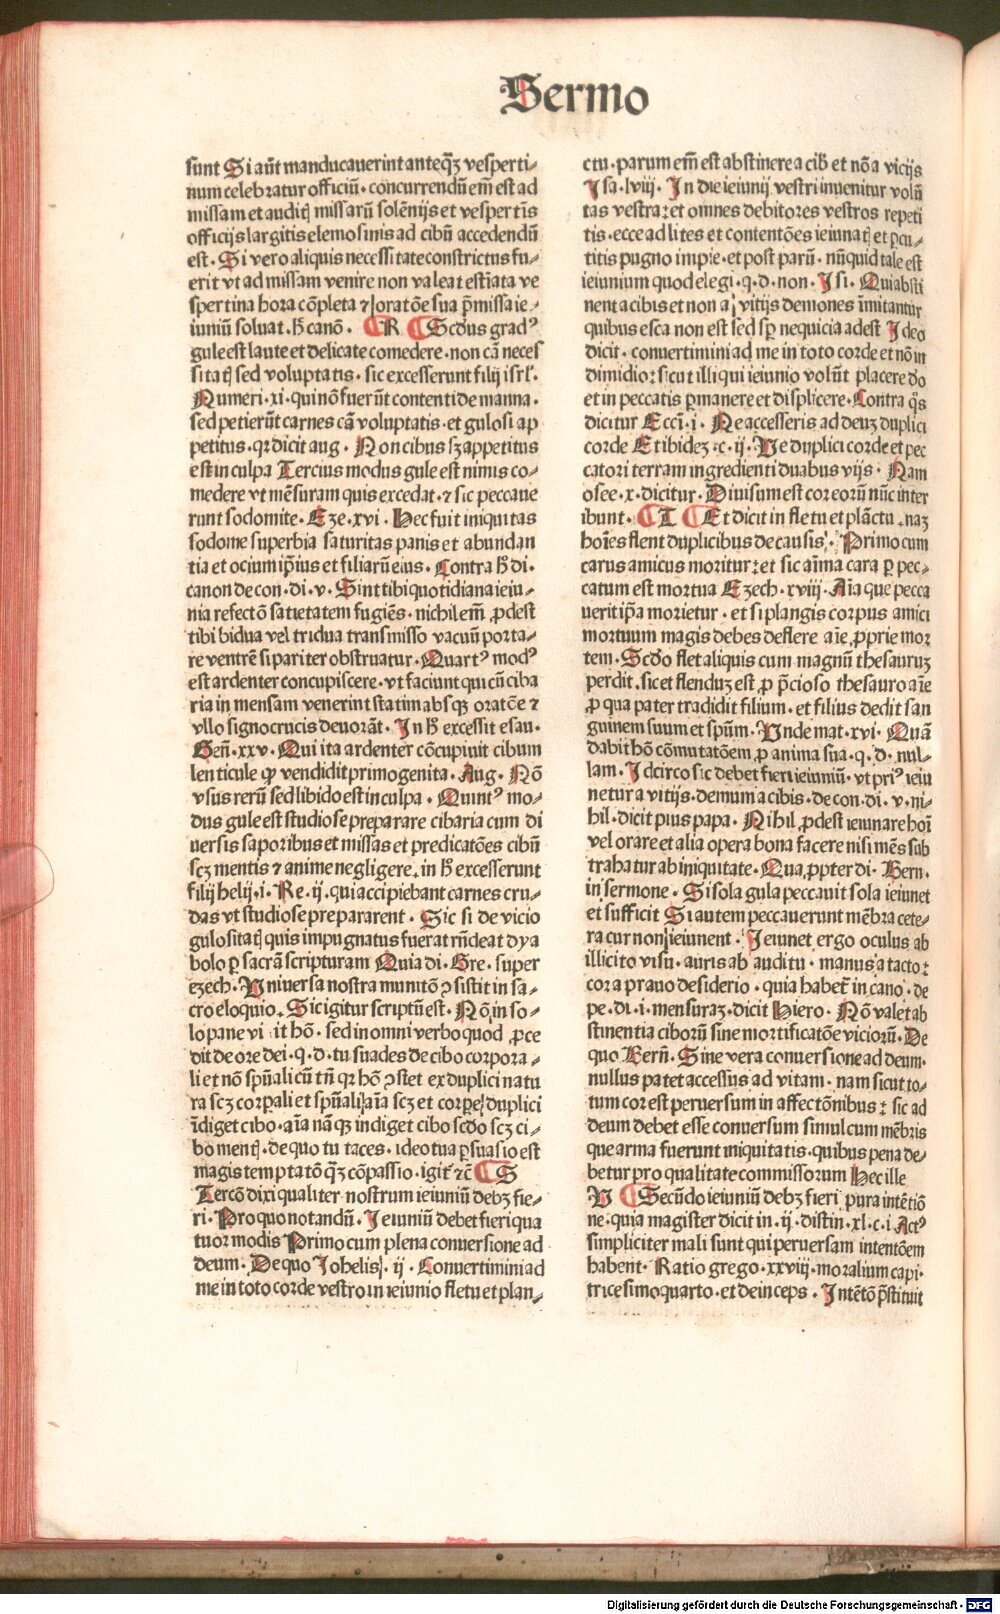 Sermo
sunt Si aūt manducauerint anteqꝫ vesperti⸗
num celebratur officiū · concurrendū em̄ est ad
missam et auditꝭ missarū solēnijs et vespertīs
officijs largitis elemosinis ad cibū accedendū
est · Si vero aliquis necessitate constrictus fu⸗
erit vt ad missam venire non valeat estīata ve
spertina hora cōpleta ⁊ oratōe sua p̄missa ie⸗
iuniū soluat . h̄ canō · ¶ R ¶ Scd̄us gradꝰ
gule est laute et delicate comedere · non cā neces
sitatꝭ sed voluptatis · sic excesserunt filij isrl̄ ·
Numeri · xi · qui nō fuerūt contenti de manna ·
sed petierūt carnes cā voluptatis · et gulosi ap
petitus · qr̄ dicit aug · Non cibus sꝫ appetitus
est in culpa Tercius modus gule est nimis co⸗
medere vt mēsuram quis excedat · ⁊ sic peccaue
runt sodomite · Eze · xvi · Hec fuit iniquitas
sodome superbia saturitas panis et abundan
tia et ocium ip̄ius et filiarū eius · Contra h̄ di ·
canon de con · di · v · Sint tibi quotidiana ieiu⸗
nia refectō satietatem fugiēs · nichil em̄ ꝓdest
tibi bidua vel tridua transmisso vacuū porta⸗
re ventrē si pariter obstruatur · Quartꝰ modꝰ
est ardenter concupiscere · vt faciunt qui cū ciba
ria in mensam venerint statim absqꝫ oratōe ⁊
vllo signo crucis deuorāt · In h̄ excessit esau ·
Gen̄ · xxv · Qui ita ardenter cōcupiuit cibum
lenticule ꝙ vendidit primogenita · Aug · Nō
vsus rerū sed libido est in culpa · Quintꝰ mo⸗
dus gule est studiose preparare cibaria cum di
uersis saporibus et missas et predicatōes cibū
scꝫ mentis ⁊ anime negligere · in h̄ excesserunt
filij helij · i · Re · ij · qui accipiebant carnes cru⸗
das vt studiose prepararent · Sic si de vicio
gulositatꝭ quis impugnatus fuerat rn̄deat dya
bolo ꝑ sacrā scripturam Quia di · Gre · super
ezech · Vniuersa nostra munitō ꝯsistit in sa⸗
cro eloquio · Sic igitur scriptū est · Nō in so⸗
lo pane viuit hō · sed in omni verbo quod ꝓce
dit de ore dei · q · d · tu suades de cibo corpora⸗
li et nō spūali cū tn̄ qr̄ hō ꝯstet ex duplici natu
ra scꝫ corꝑali et spūali aīa scꝫ et corꝑe duplici
īdiget cibo · aīa nāqꝫ indiget cibo scd̄o scꝫ ci⸗
bo mentꝭ · de quo tu taces · ideo tua ꝑsuasio est
magis temptatō qꝫ cōpassio · igit̄ ⁊c̄ ¶ S
Tercō dixi qualiter nostrum ieiuniū debꝫ fie⸗
ri · Pro quo notandū · Ieiuniū debet fieri qua
tuor modis Primo cum plena conuersione ad
deum · De quo Iohelis · ij · Conuertimini ad
me in toto corde vestro in ieiunio fletu et plan⸗
ctu · parum em̄ est abstinere a cib̄ et nō a vicijs
Isa · lviij · In die ieiunij vestri inuenitur volū
tas vestra : et omnes debitores vestros repeti
tis · ecce ad lites et contentōes ieiunatꝭ et ꝑcu⸗
titis pugno impie · et post parū · nūquid tale est
ieiunium quod elegi · q · d · non · Isi · Qui absti
nent a cibis et non a vitijs demones īmitantur
quibus esca non est sed sꝑ nequicia adest Ideo
dicit · conuertimini ad me in toto corde et nō in
dimidio : sicut illi qui ieiunio volūt placere do
et in peccatis ꝑmanere et displicere · Contra q̄s
dicitur Ecci̅ · i · Ne accesseris ad deuꝫ duplici
corde Et ibidez · c · ij · Ve duplici corde et pec
catori terram ingredienti duabus vijs · Nam
osee · x · dicitur · Diuisum est cor eorū nūc inter
ibunt · ¶ T ¶ Et dicit in fletu et plāctu · naꝫ
hoīes flent duplicibus de causis · Primo cum
carus amicus moritur : et sic aīma cara ꝑ pec⸗
catum est mortua Ezech · xviij · Aīa que pecca
uerit ip̄a morietur · et si plangis corpus amici
mortuum magis debes deflere aīe ꝓprie mor
tem · Scd̄o flet aliquis cum magnū thesauruꝫ
perdit · sic et flenduꝫ est ꝓ p̄cioso thesauro aīe
ꝓ qua pater tradidit filium · et filius dedit san
guinem suum et spūm · Vnde mat · xvi · Quā
dabit hō cōmutatōem ꝓ anima sua · q · d · nul⸗
lam · Idcirco sic debet fieri ieiuniū · vt priꝰ ieiu
netur a vitijs · demum a cibis · de con · di · v · ni⸗
hil · dicit pius papa · Nihil ꝓdest ieiunare hoī
vel orare et alia opera bona facere nisi mēs sub
trahatur ab iniquitate · Quaꝓpter di · Bern ·
in sermone · Si sola gula peccauit sola ieiunet
et sufficit Si autem peccauerunt mēbra cete⸗
ra cur non ieiunent · Ieiunet ergo oculus ab
illicito visu · auris ab auditu · manus a tacto :
cor a prauo desiderio · quia habet̄ in cano · de
pe · di · i · mensuraꝫ · dicit Hiero · Nō valet ab
stinentia ciborū sine mortificatōe viciorū · De
quo Bern̄ · Sine vera conuersione ad deum ·
nullus patet accessus ad vitam · nam sicut to⸗
tum cor est peruersum in affectōnibus : sic ad
deum debet esse conuersum simul cum mēbris
que arma fuerunt iniquitatis · quibus pena de⸗
betur pro qualitate commissorum Hec ille
V ¶ Secūdo ieiuniū debꝫ fieri pura intētiō
ne · quia magister dicit in · ij · distin · xl · c · i · Actꝰ
simpliciter mali sunt qui peruersam intentōem
habent · Ratio grego · xxviij · moralium capi ·
tricesimoquarto · et deinceps · Intētō p̄stituit
Digitalisierung gefördert durch die Deutsche Forschungsgemeinschaft - DFG